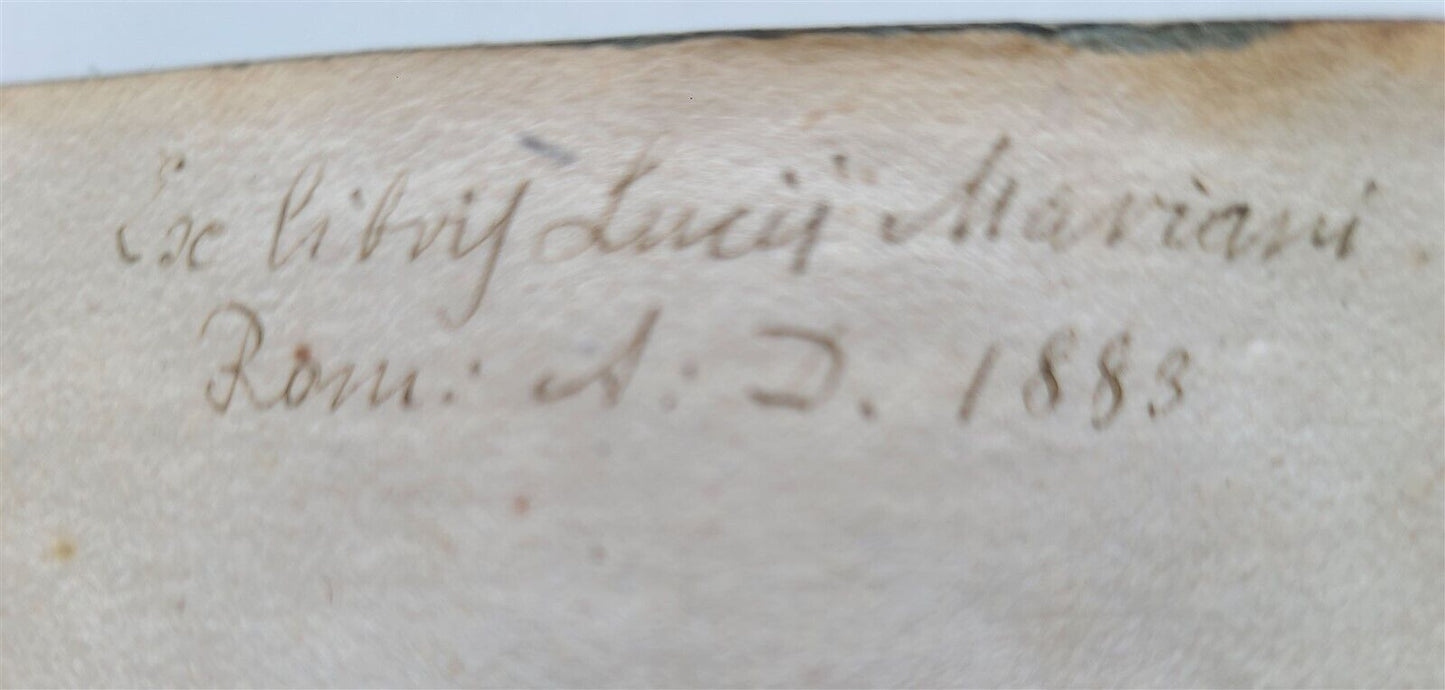 Ex libris Lucij Mariani.
Rom: A: D. 1883